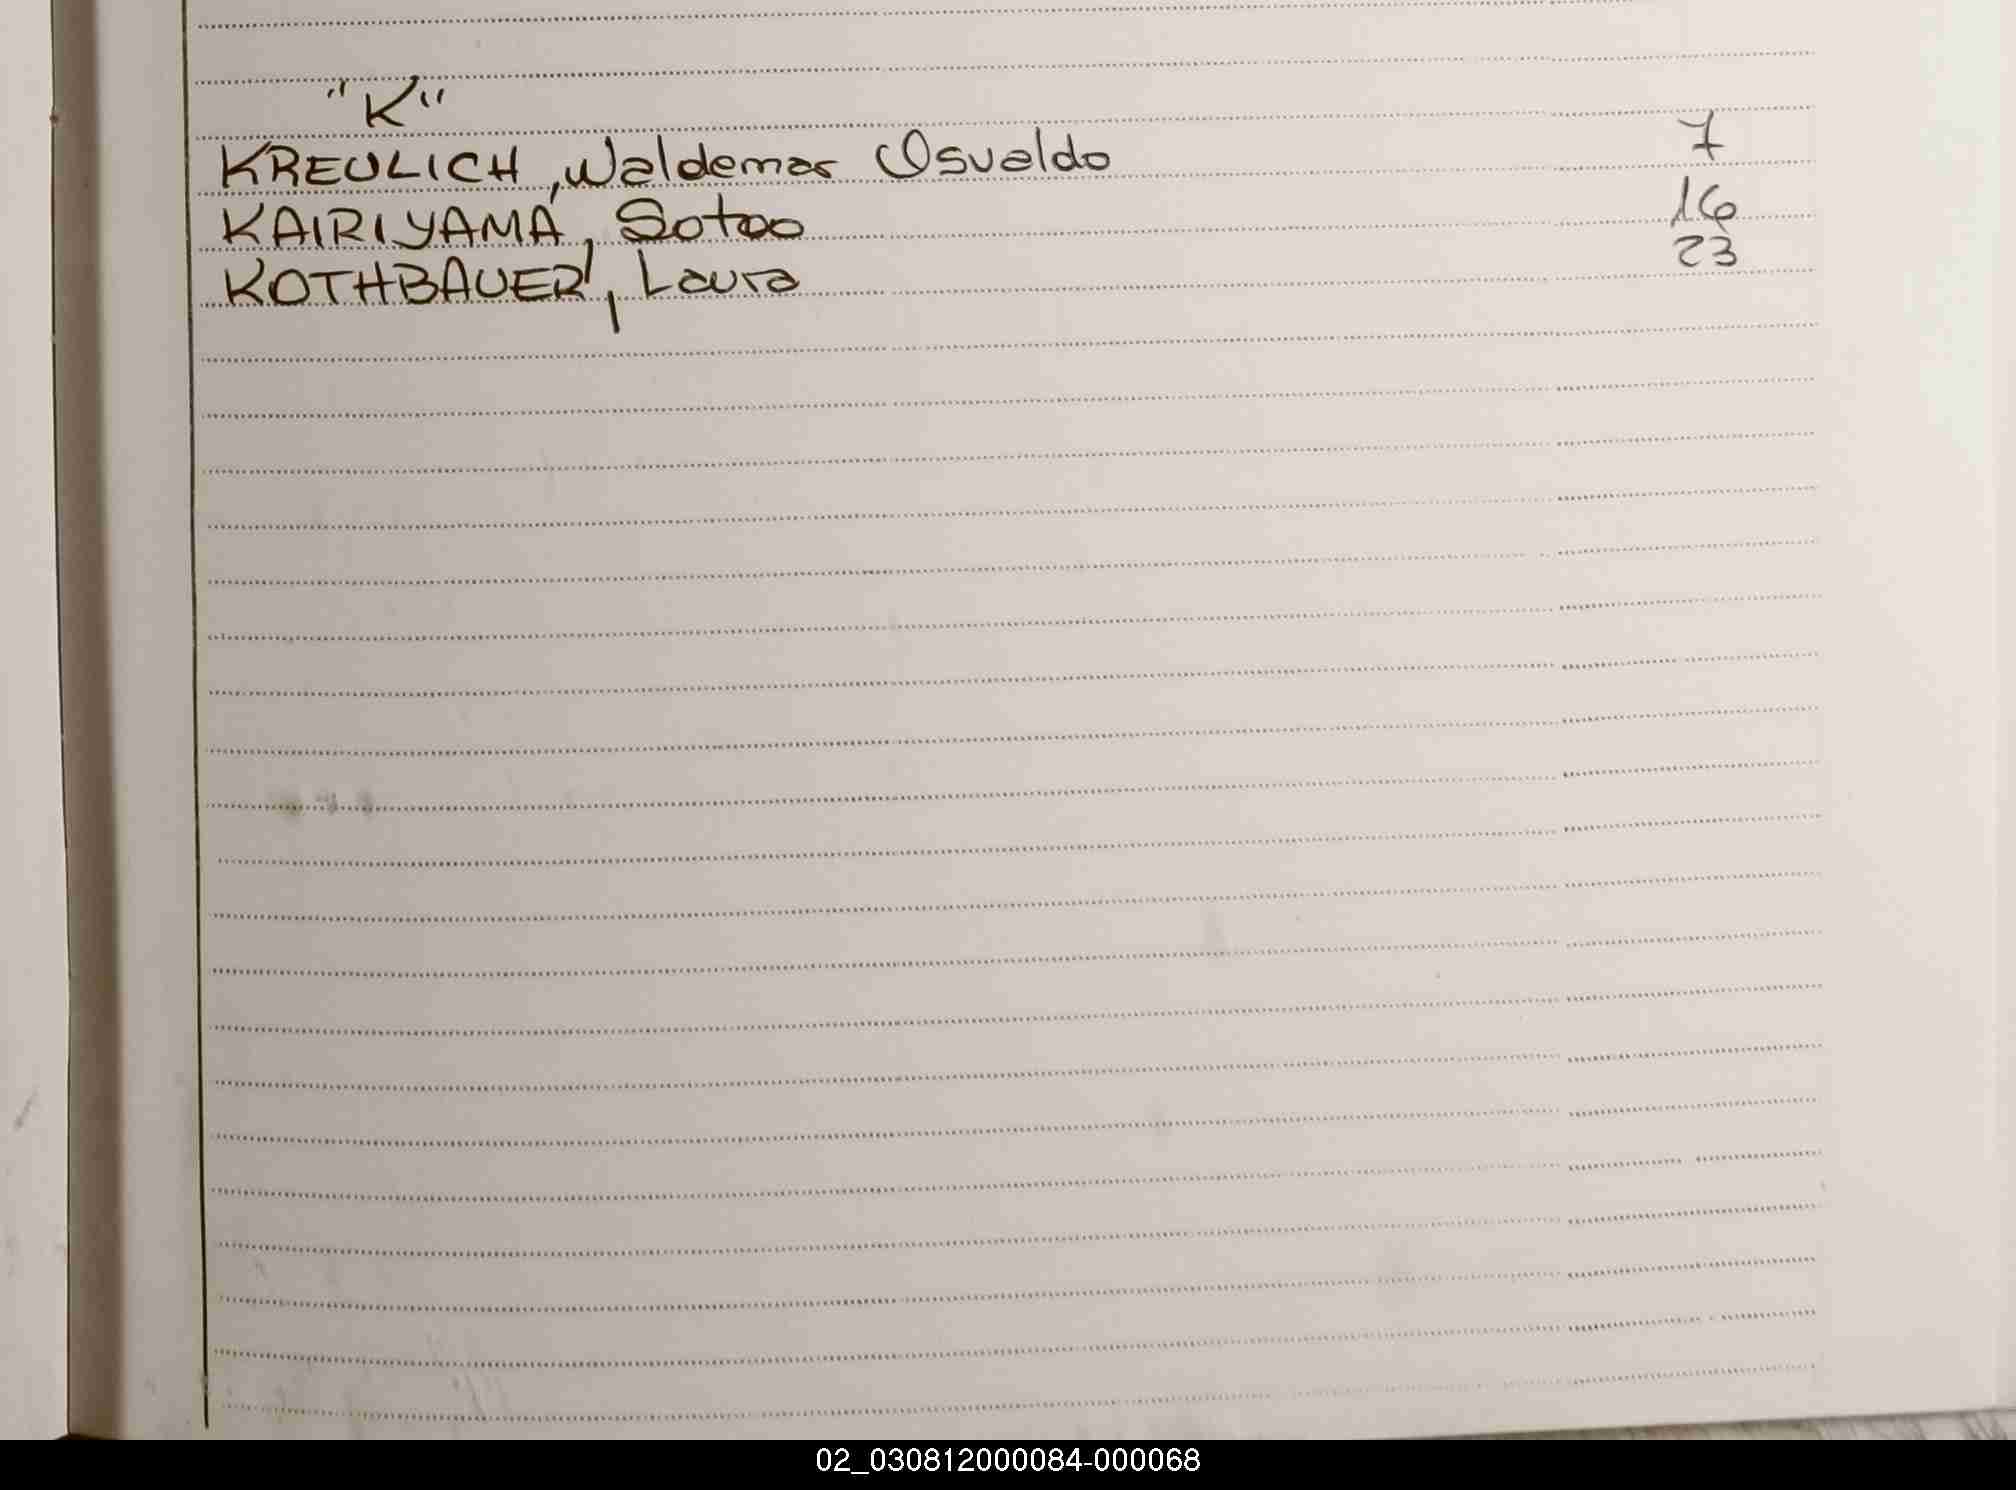 "K"
KREULICH, Waldemar Osvaldo 7
KAIRIYAMA, Sotoo 16
KOTHBAUER, Laura 23
02_030812000084-000068